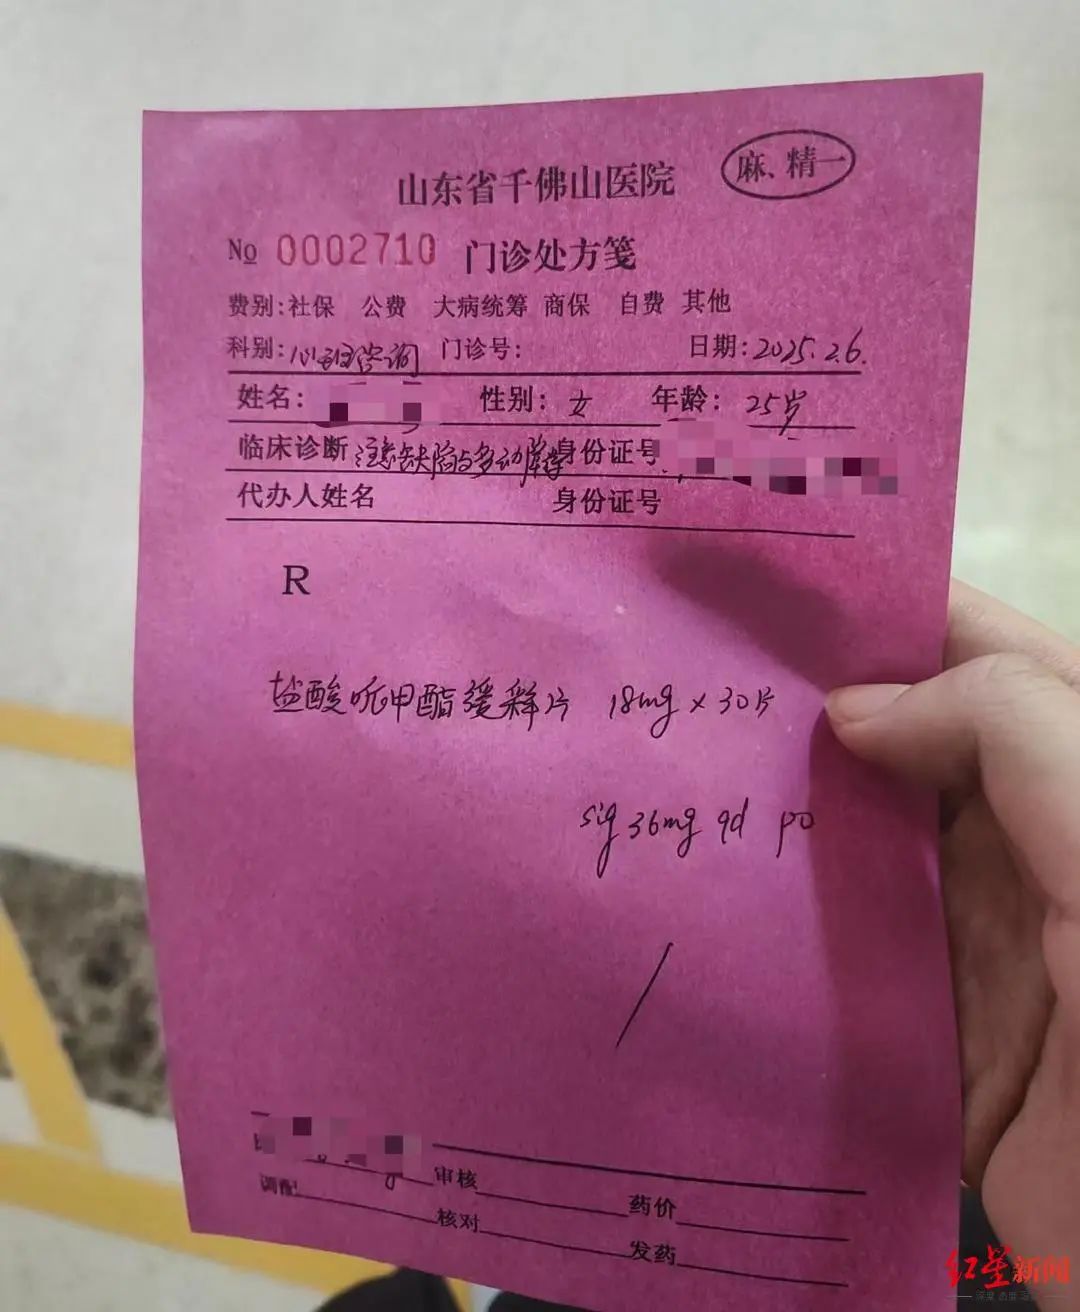 麻、精一
山东省千佛山医院
No 0002710 门诊处方笺
费别:社保 公费 大病统筹 商保 自费 其他
科别:心理咨询 门诊号: 日期:2025.2.6.
姓名: 性别: 女 年龄: 25岁
临床诊断 注意缺陷与多动障碍 身份证号
代办人姓名 身份证号
R
盐酸哌甲酯缓释片 18mg×30片
sig 36mg qd po
审核 药价
调配 核对 发药
红星新闻